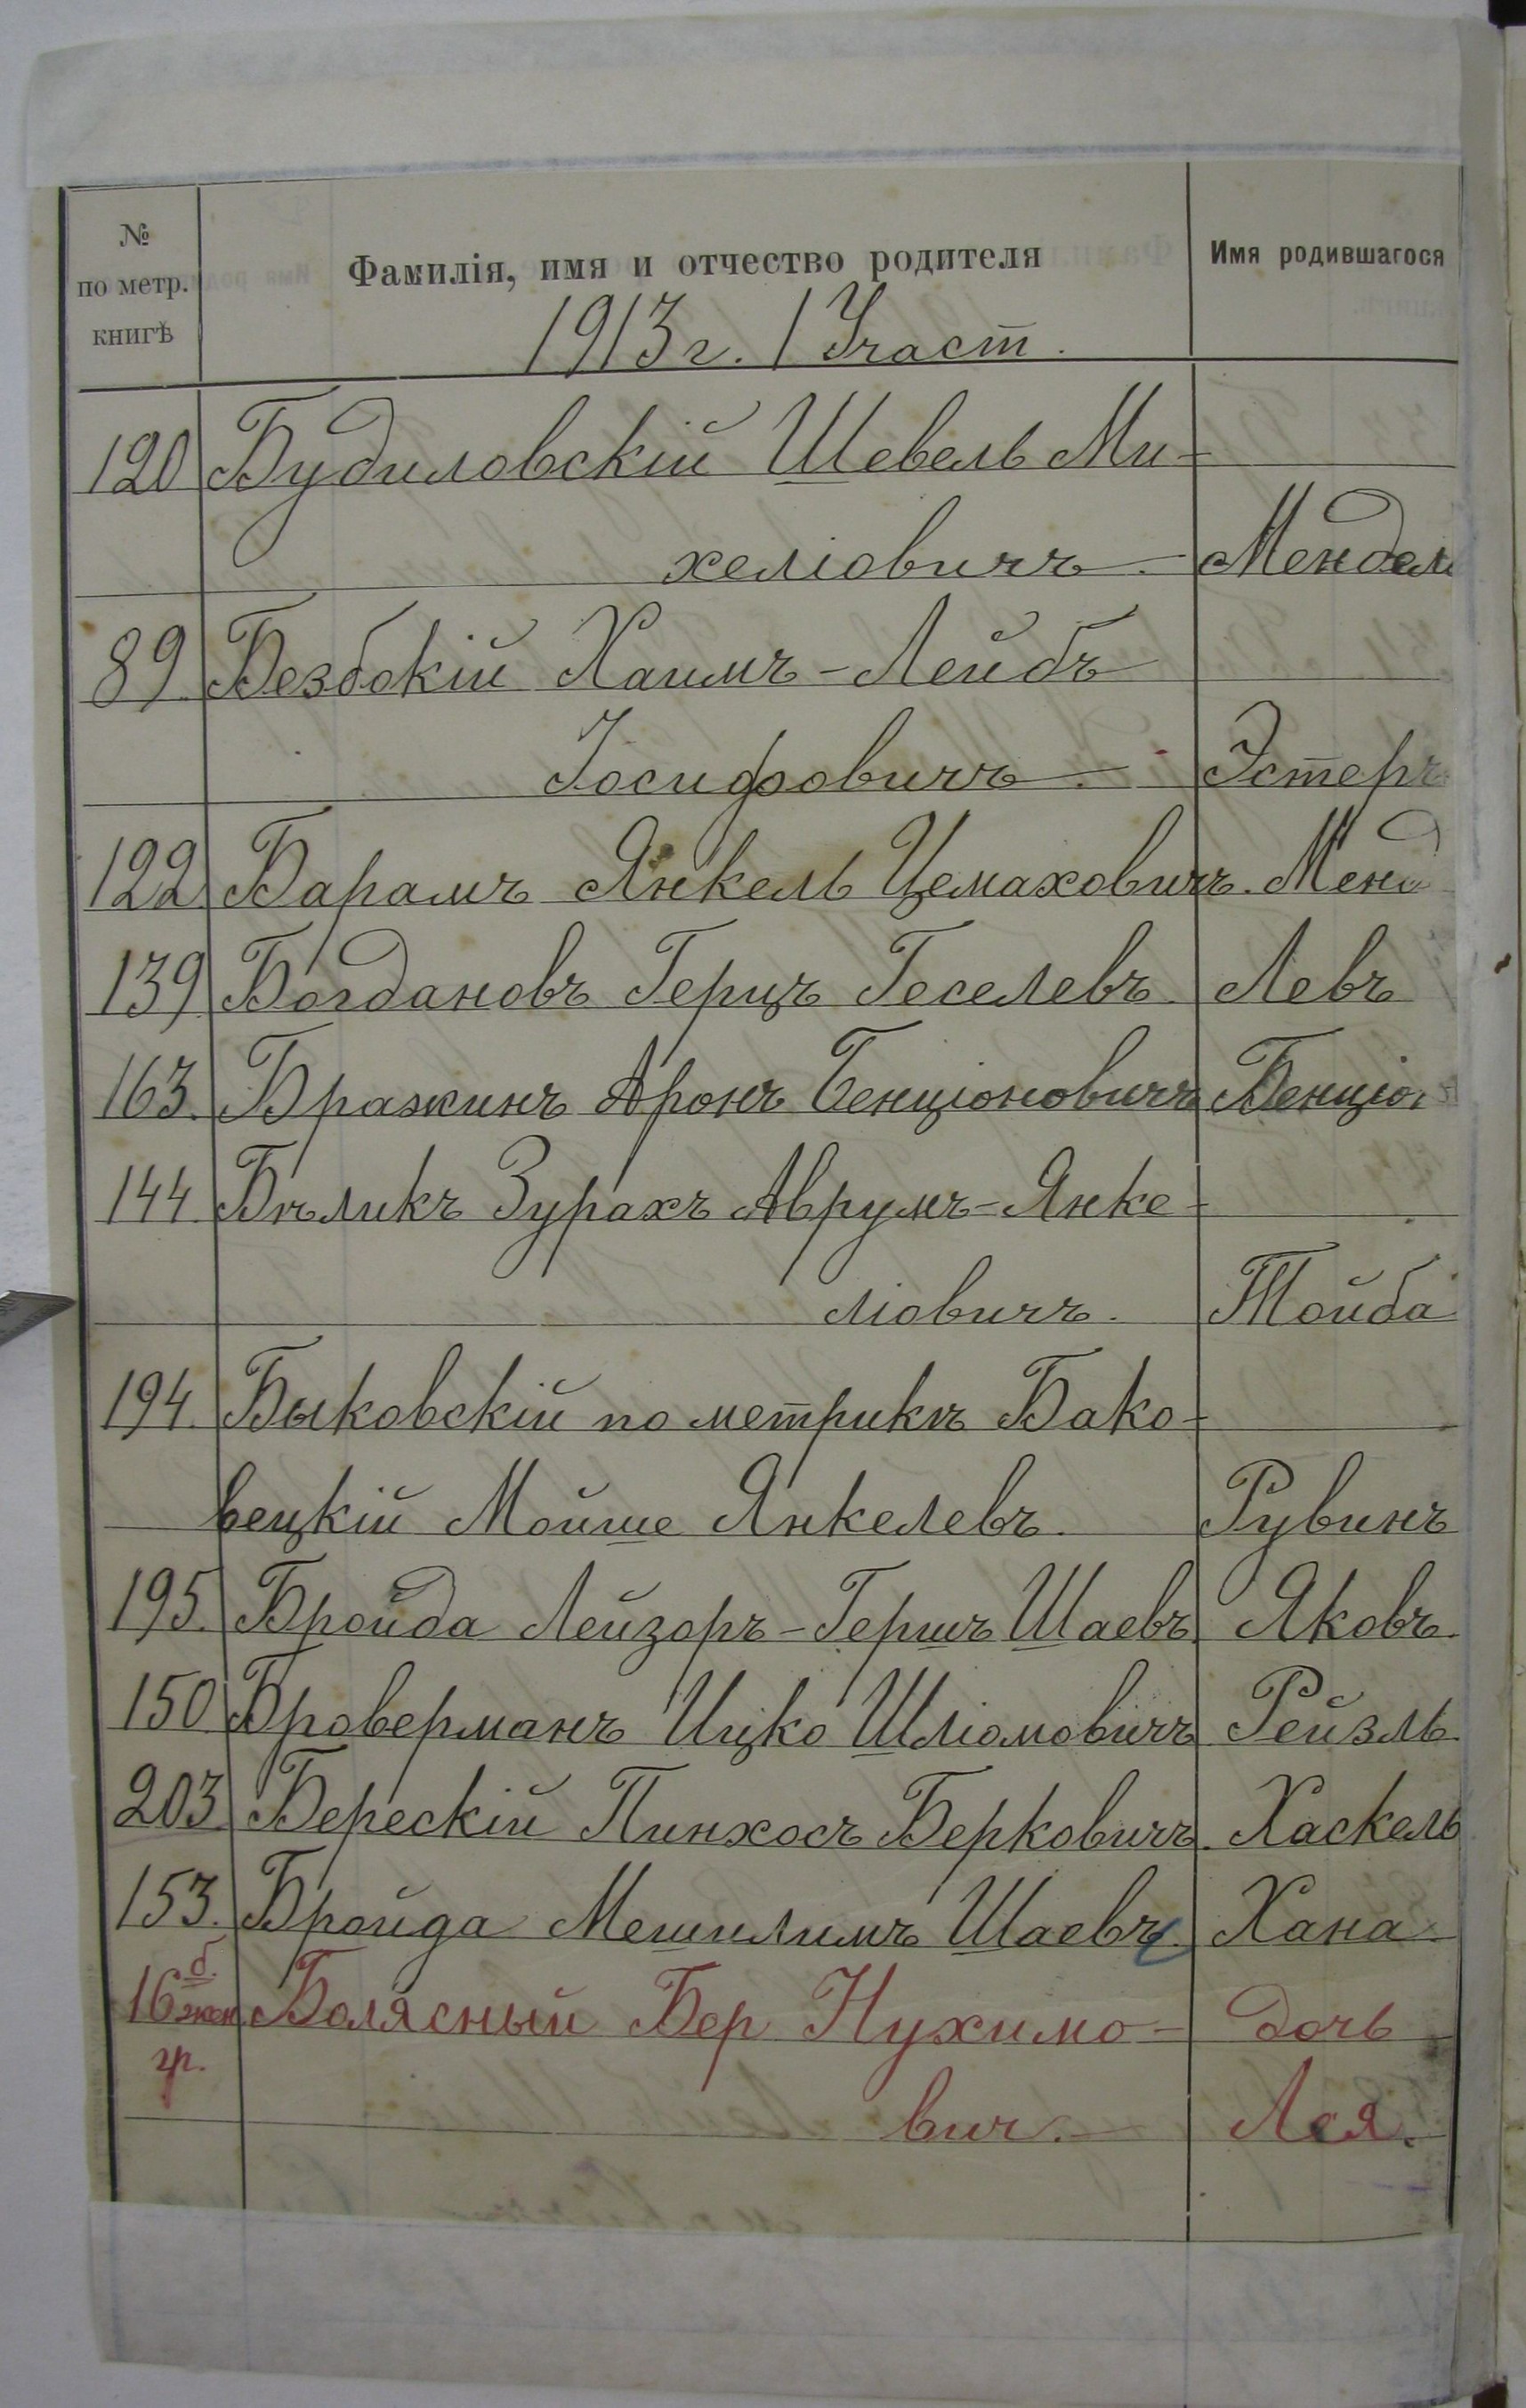 № по метр. книгѣ
Фамилія, имя и отчество родителя
Имя родившагося
1913 г. 1 Участ.
120 Будиловскій Шевель Ми-
хеліовичъ. Мендель
89. Безбокій Хаимъ-Лейбъ
Іосифовичъ. Эстеръ
122 Барамъ Янкель Цемаховичъ. Менд
139. Богдановъ Герцъ Геселевъ. Левъ
163. Бражинъ Аронъ Бенціоновичъ Бенціон
144. Бѣликъ Зурахъ Аврумъ-Янке-
ліовичъ. Тойба
194. Быковскій по метрикѣ Бако-
вецкій Мойше Янкелевъ. Рувинъ
195. Бройда Лейзоръ-Гершъ Шаевъ. Яковъ.
150. Броверманъ Ицко Шліомовичъ Рейзль
203. Берескій Пинхосъ Берковичъ. Хаскель
153. Бройда Мешилимъ Шаевъ. Хана
16 б. жен. гр. Болясный Бер Нухимо- дочь
вич. Лея.